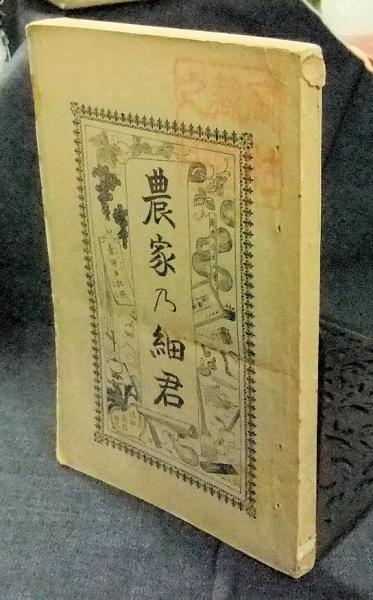 農家乃細君